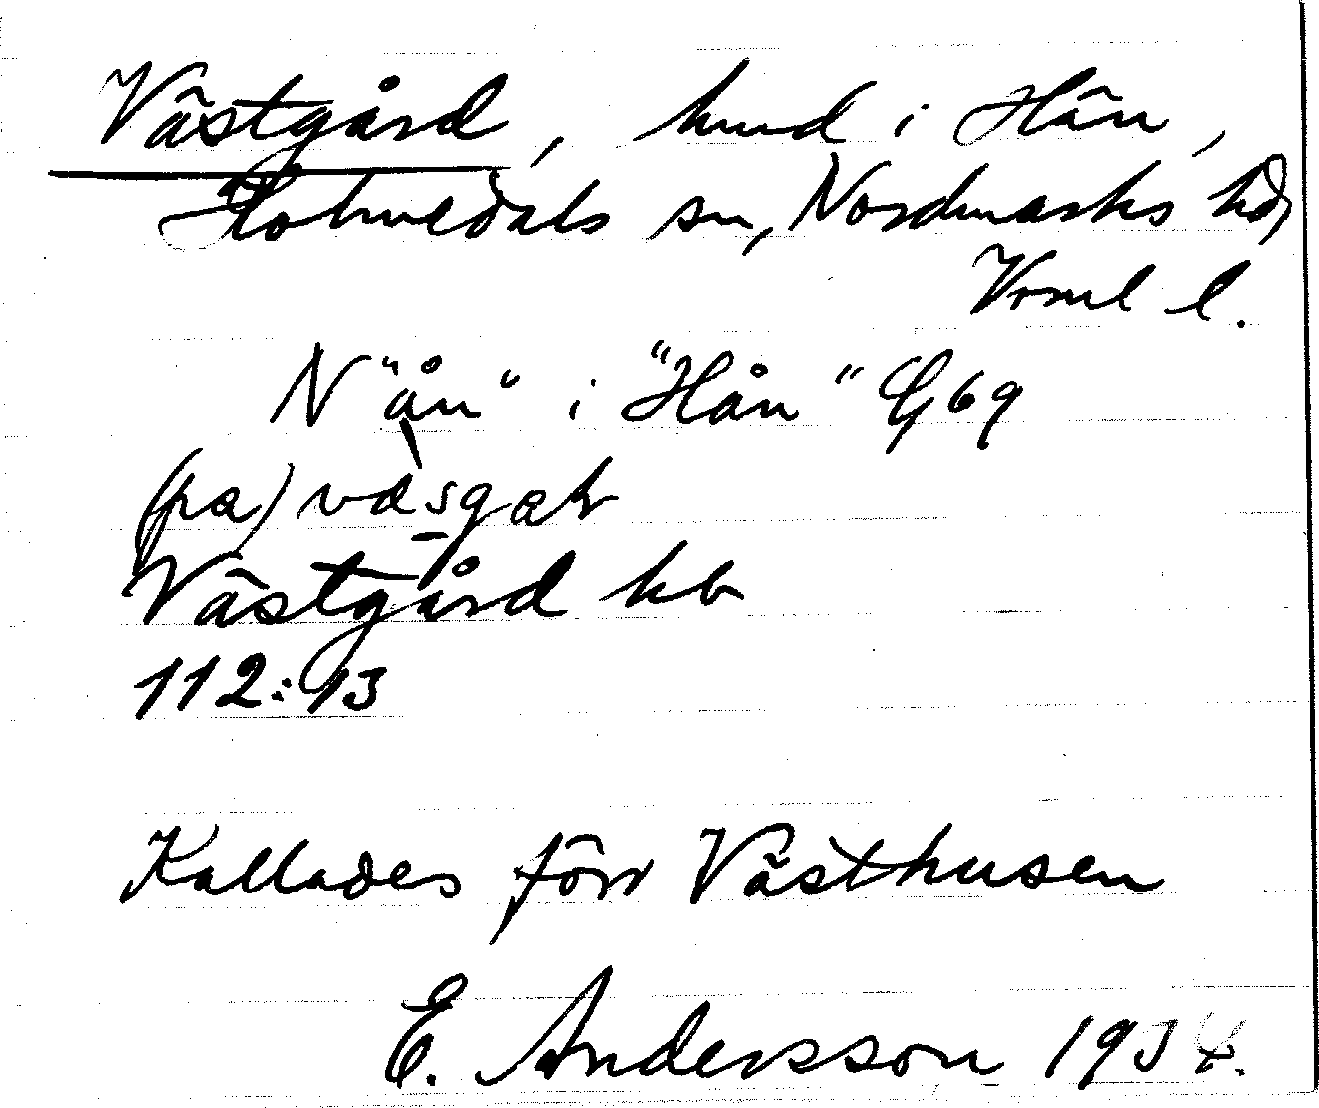 Västgård, hmd i Hån,
Holmedals sn, Nordmarks hd,
Vrml l.
N "ån" i "Hån" G 69
(pa)väsgaɽ
Västgård kb
112:13
Kallades förr Västhusen
E. Andersson 1934.